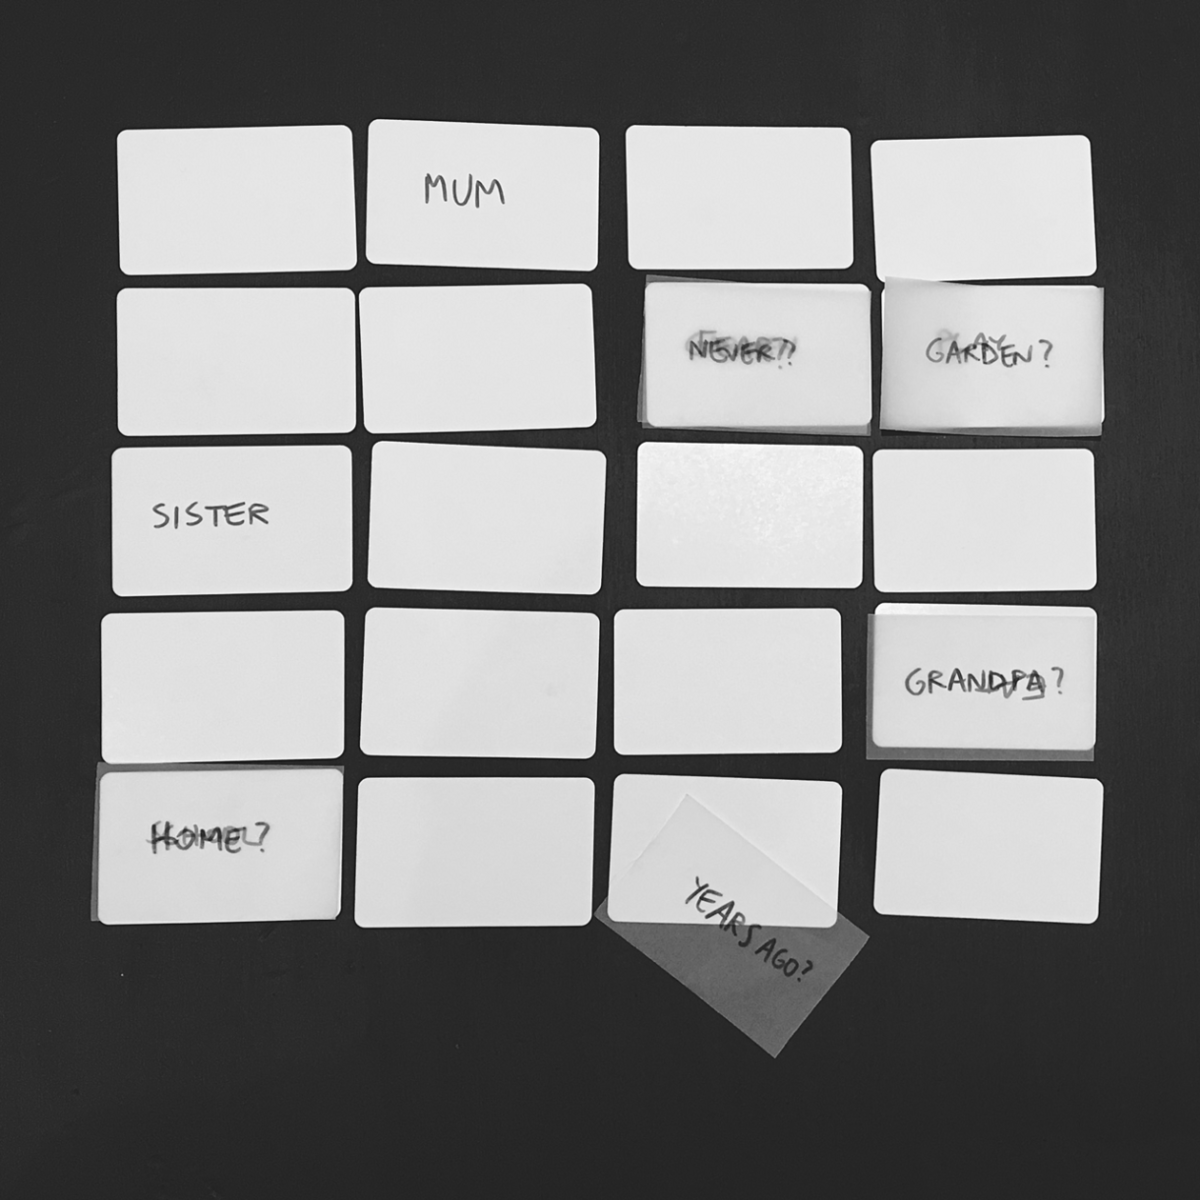 MUM
NEVER??
GARDEN?
SISTER
GRANDPA?
HOME?
YEARS AGO?